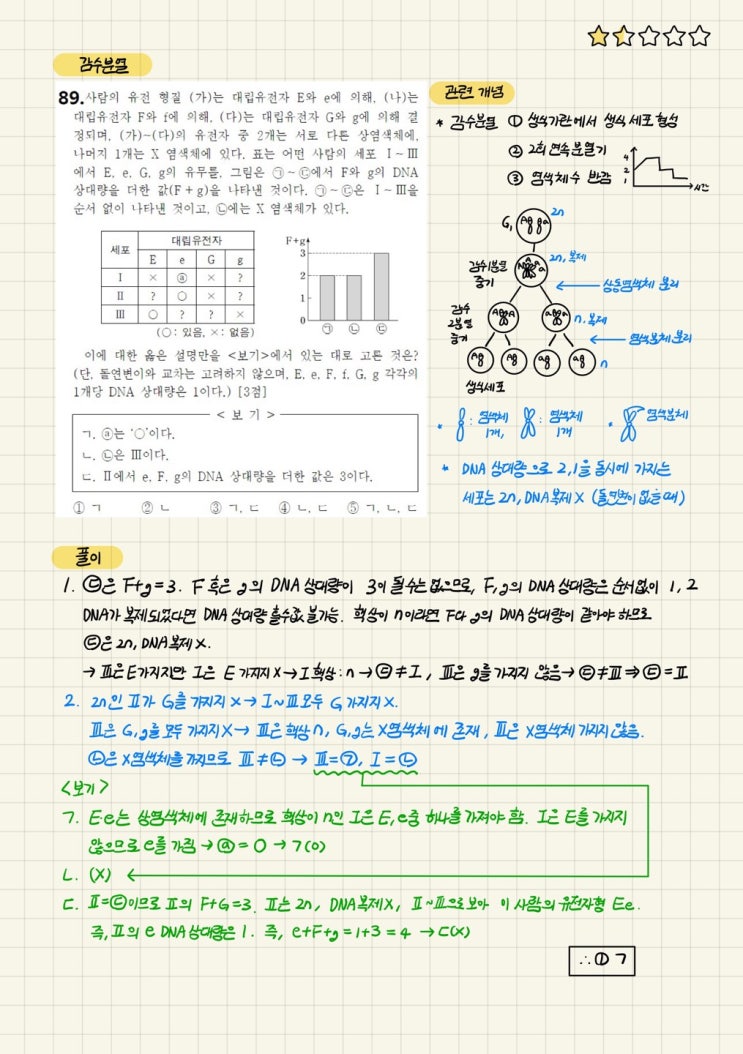 감수분열
89. 사람의 유전 형질 (가)는 대립유전자 E와 e에 의해, (나)는
대립유전자 F와 f에 의해, (다)는 대립유전자 G와 g에 의해 결
정되며, (가)~(다)의 유전자 중 2개는 서로 다른 상염색체에,
나머지 1개는 X 염색체에 있다. 표는 어떤 사람의 세포 Ⅰ~Ⅲ
에서 E, e, G, g의 유무를, 그림은 ㉠~㉢에서 F와 g의 DNA
상대량을 더한 값(F+g)을 나타낸 것이다. ㉠~㉢은 Ⅰ~Ⅲ을
순서 없이 나타낸 것이고, ㉡에는 X 염색체가 있다.
세포 대립유전자
E e G g
Ⅰ × ⓐ × ?
Ⅱ ? ○ × ?
Ⅲ ○ ? ? ×
(○: 있음, ×: 없음)
F+g
3
2
1
0
㉠ ㉡ ㉢
이에 대한 옳은 설명만을 <보기>에서 있는 대로 고른 것은?
(단, 돌연변이와 교차는 고려하지 않으며, E, e, F, f, G, g 각각의
1개당 DNA 상대량은 1이다.) [3점]
< 보 기 >
ㄱ. ⓐ는 '○'이다.
ㄴ. ㉡은 Ⅲ이다.
ㄷ. Ⅱ에서 e, F, g의 DNA 상대량을 더한 값은 3이다.
① ㄱ ② ㄴ ③ ㄱ, ㄷ ④ ㄴ, ㄷ ⑤ ㄱ, ㄴ, ㄷ
관련 개념
* 감수분열 ① 생식기관에서 생식 세포 형성
② 2회 연속 분열기
③ 염색체 수 반감
4
2
1
시간
G₁ 2n
감수1분열
중기
2n, 복제
상동염색체 분리
감수
2분열
중기
n, 복제
염색분체 분리
n
생식세포
* : 염색체
1개,
: 염색체
1개
* 염색분체
* DNA 상대량으로 2, 1을 동시에 가지는
세포는 2n, DNA복제 X (돌연변이 없을 때)
풀이
1. ㉢은 F+g=3. F 혹은 g의 DNA 상대량이 3이 될 수는 없으므로, F, g의 DNA 상대량은 순서없이 1, 2
DNA가 복제되었다면 DNA 상대량 홀수값 불가능. 핵상이 n이라면 F와 g의 DNA 상대량이 같아야 하므로
㉢은 2n, DNA복제 X.
→ Ⅲ은 E가지지만 Ⅰ은 E 가지지 X → Ⅰ 핵상 : n → ㉢≠Ⅰ, Ⅲ은 g를 가지지 않음 → ㉢≠Ⅲ ⇒ ㉢=Ⅱ
2. 2n인 Ⅱ가 G를 가지지 X → Ⅰ~Ⅲ 모두 G 가지지 X.
Ⅲ은 G, g를 모두 가지지 X → Ⅲ은 핵상 n, G, g는 X염색체에 존재, Ⅲ은 X염색체 가지지 않음.
㉡은 X염색체를 가지므로 Ⅲ≠㉡ → Ⅲ=㉠, Ⅰ=㉡
<보기>
ㄱ. Ee는 상염색체에 존재하므로 핵상이 n인 Ⅰ은 E, e중 하나를 가져야 함. Ⅰ은 E를 가지지
않으므로 e를 가짐 → ⓐ=O → ㄱ(O)
ㄴ. (X)
ㄷ. Ⅱ=㉢이므로 Ⅱ의 F+G=3. Ⅱ는 2n, DNA복제X, Ⅱ~Ⅲ으로보아 이 사람의 유전자형 Ee.
즉, Ⅱ의 e DNA 상대량은 1. 즉, e+F+g=1+3=4 → ㄷ(X)
∴ ① ㄱ